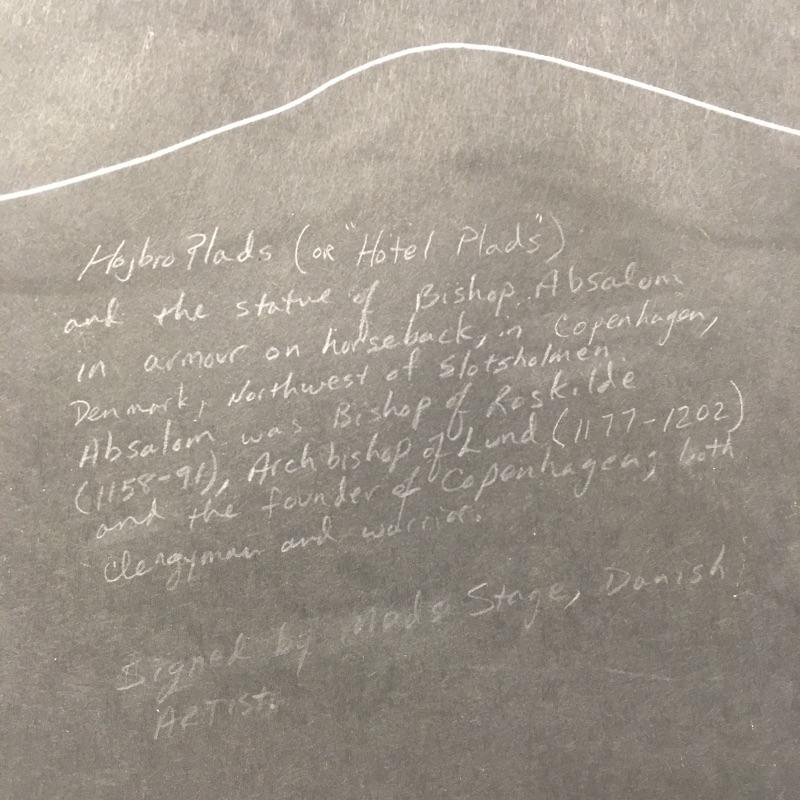 Hojbro Plads (OR "Hotel Plads")
and the statue of Bishop Absalom
in armour on horseback, in Copenhagen,
Denmark, Northwest of Slotsholmen.
Absalom was Bishop of Roskilde
(1158-91), Archbishop of Lund (1177-1202)
and the founder of Copenhagen; both
clergyman and warrior.
Signed by Mads Stage, Danish
ARTIST.